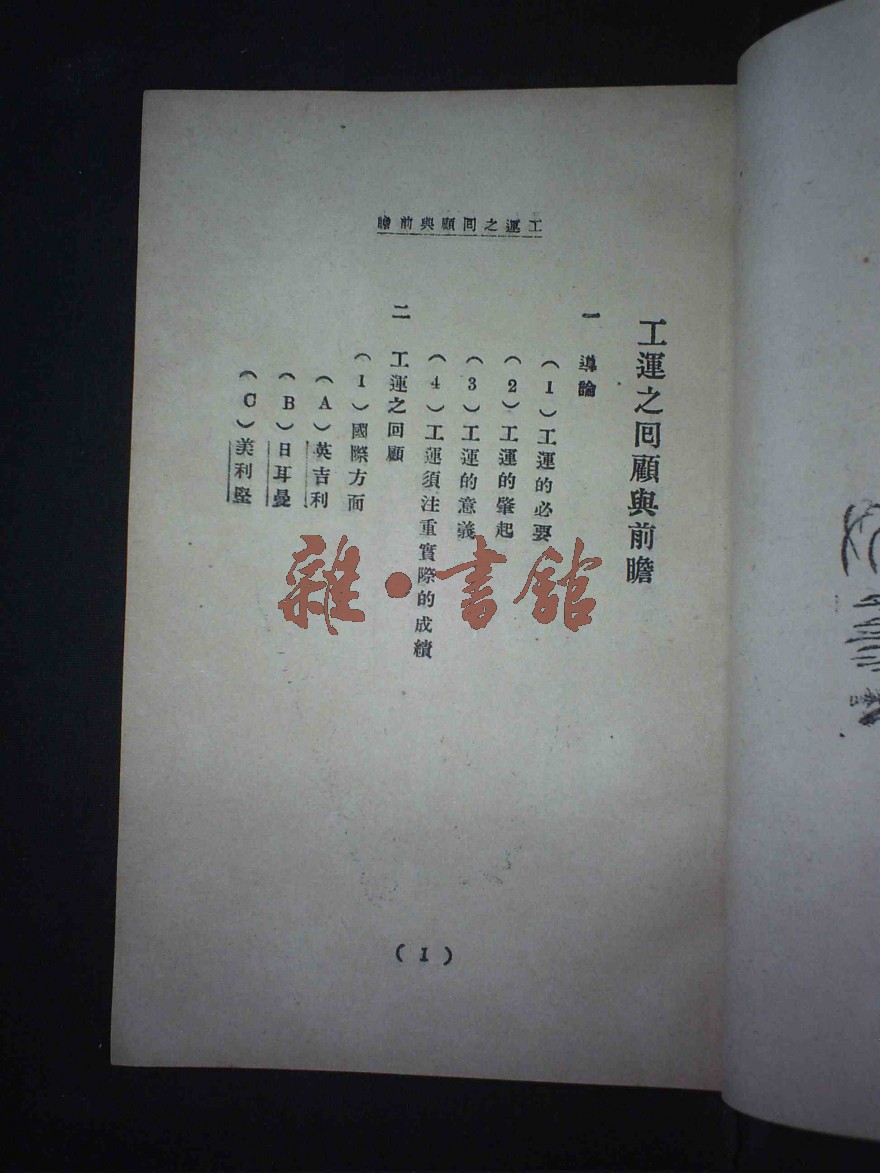 工運之囘顧與前瞻
工運之囘顧與前瞻
一 導論
（1）工運的必要
（2）工運的肇起
（3）工運的意義
（4）工運須注重實際的成績
二 工運之回顧
（1）國際方面
（A）英吉利
（B）日耳曼
（C）美利堅
雜·書館
（1）